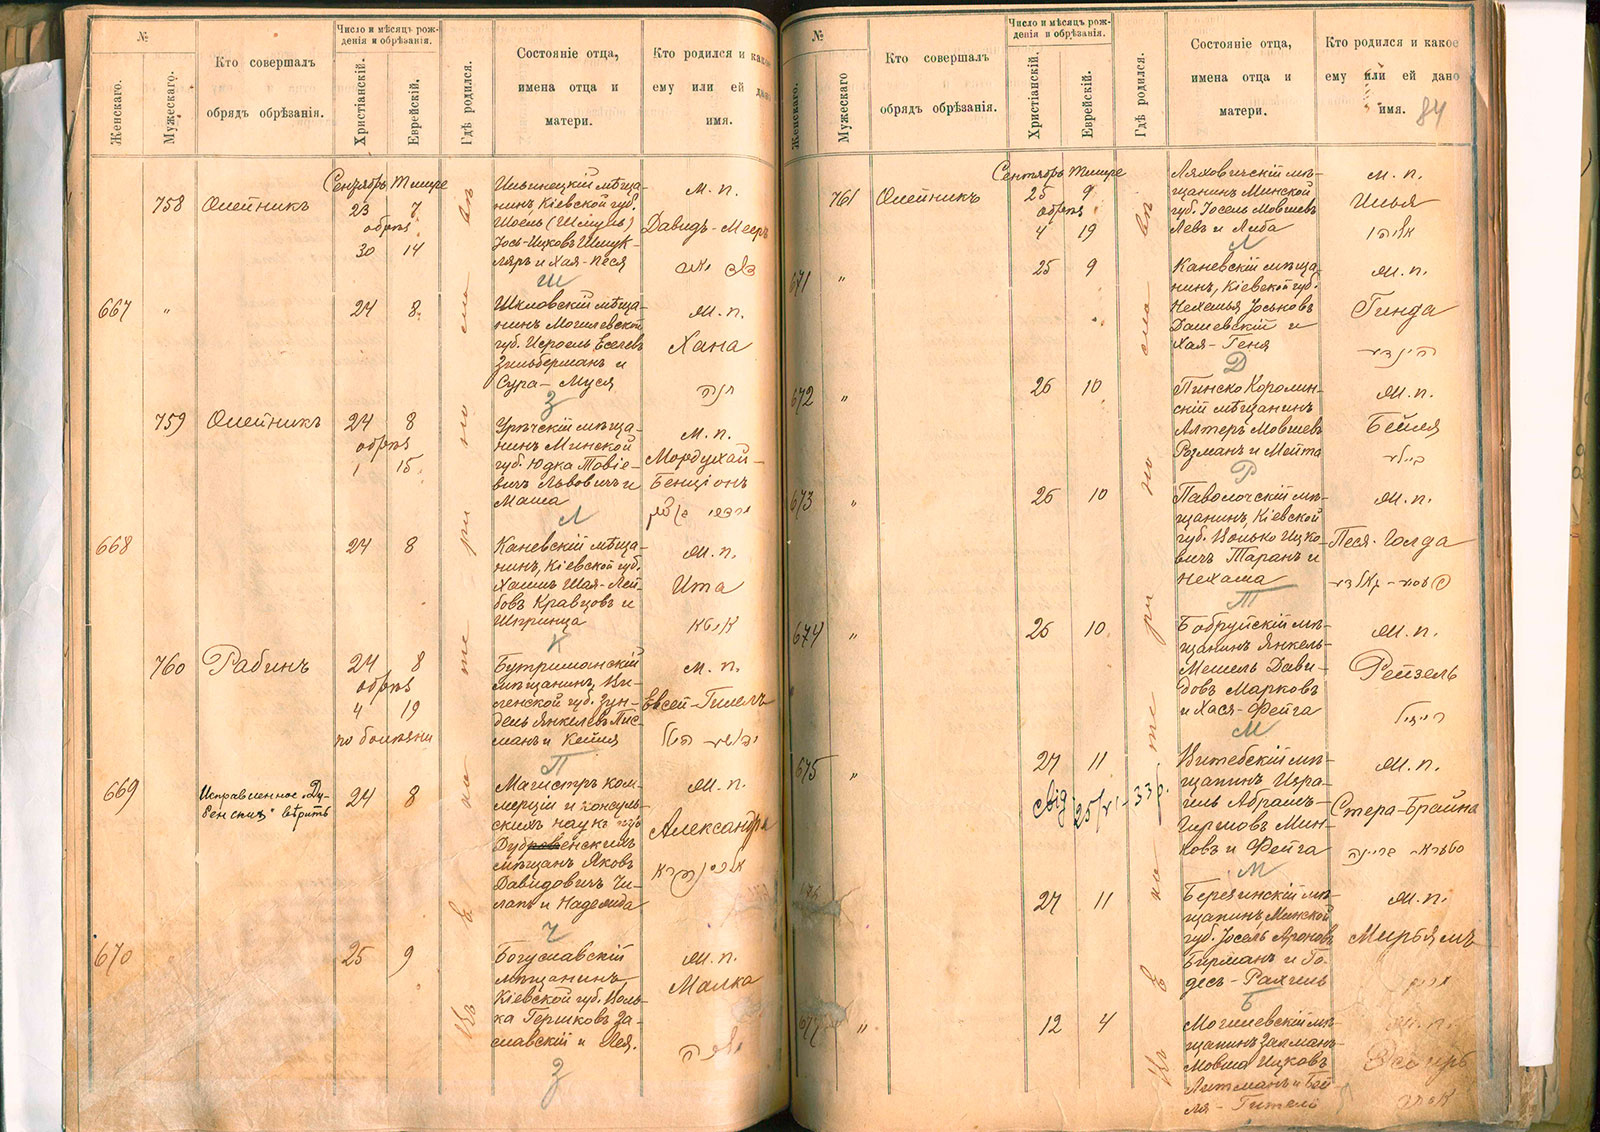 №
Женскаго.
Мужескаго.
Кто совершалъ
обрядъ обрѣзанія.
Число и мѣсяцъ рож-
денія и обрѣзанія.
Христіанскій.
Еврейскій.
Гдѣ родился.
Состояніе отца,
имена отца и
матери.
Кто родился и како
ему или ей дано
имя.
758
Олейникъ
Сентябрь Тишре
23 7
обрѣз
30 14
Ильинецкій мѣща-
нинъ Кіевской губ.
Іось-Ицковъ Шмук-
ляръ и Хая-Песя
Ш
м. п.
Давидъ-Мееръ
667
"
24 8
Шкловскій мѣща-
нинъ Могилевской
губ. Исроель Еселевъ
Зильберманъ и
Сура-Муся
З
м. п.
Хана
חנה
759
Олейникъ
24 8
обрѣз
1 15
мѣща-
нинъ Минской
губ. Юдка Товіе-
вичъ Львовичъ и
Маша
Л
м. п.
Мордухай-
Бенціонъ
668
24 8
Каневскій мѣща-
нинъ, Кіевской губ.
Хаимъ Шая-Лей-
бовъ Кравцовъ и
Шпринца
К
м. п.
Ита
איטא
760
Рабинъ
24 8
обрѣз
4 19
по болѣзни
Бутриманскій
мѣщанинъ, Ви-
ленской губ. Зун-
дель Янкелевъ Пис-
манъ и Кейля
П
м. п.
Евсей-Гилелъ
669
Исправленное „Ду-
бенскихъ" вѣрить
24 8
Магистръ ком-
мерціи и консуль-
скихъ наукъ изъ
Дубенскихъ
мѣщанъ Яковъ
Давидовичъ Чи-
лапъ и Надежда
Ч
м. п.
Александра
670
25 9
Богуславскій
мѣщанинъ,
Кіевской губ. Воль-
ка Гершковъ За-
славскій и Лея.
З
м. п.
Малка
מלכה
Въ Кіевѣ
№
Женскаго.
Мужескаго
Кто совершалъ
обрядъ обрѣзанія.
Число и мѣсяцъ рож-
денія и обрѣзанія.
Христіанскій.
Еврейскій.
Гдѣ родился.
Состояніе отца,
имена отца и
матери.
Кто родился и какое
ему или ей дано
имя.
84
761
Олейникъ
Сентябрь Тишре
25 9
обрѣз
4 19
Ляховичскій мѣ-
щанинъ Минской
губ. Іосель Мовшевъ
Левъ и Либа
Л
м. п.
Илья
אליהו
671
"
25 9
Каневскій мѣща-
нинъ, Кіевской губ.
Нехемья Іоськовъ
Дашевскій и
Хая-Геня
Д
м. п.
Гинда
הינדע
672
"
26 10
Пинско Каролин-
скій мѣщанинъ
Алтеръ Мовшевъ
Розманъ и Мейта
Р
м. п.
Бейля
ביילע
673
"
26 10
Паволочскій мѣ-
щанинъ, Кіевской
губ. Іонько Ицко-
вичъ Таранъ и
Нехама
Т
м. п.
Песя-Голда
פעסיע-גאלדע
674
"
26 10
Бобруйскій мѣ-
щанинъ Янкель-
Мешель Дави-
довъ Марковъ
и Хася-Фейга
М
м. п.
Рейзель
רייזיל
675
"
27 11
свід 25/VI-33 р.
Витебскій мѣ-
щанинъ Изра-
иль Абрамъ-
Гиршовъ Мин-
ковъ и Фейга
М
м. п.
Стера-Брайна
סטערא-בריינה
27 11
Березинскій мѣ-
щанинъ Минской
губ. Іосель Ароновъ
Бирманъ и Го-
десъ-Рахиль
Б
м. п.
Мирьямъ
מרים
677
"
12 4
Могилевскій мѣ-
щанинъ Залманъ-
Мовша Ицковъ
Литманъ и Бей-
ля-Гитель
м. п.
Эсѳирь
Въ Кіевѣ